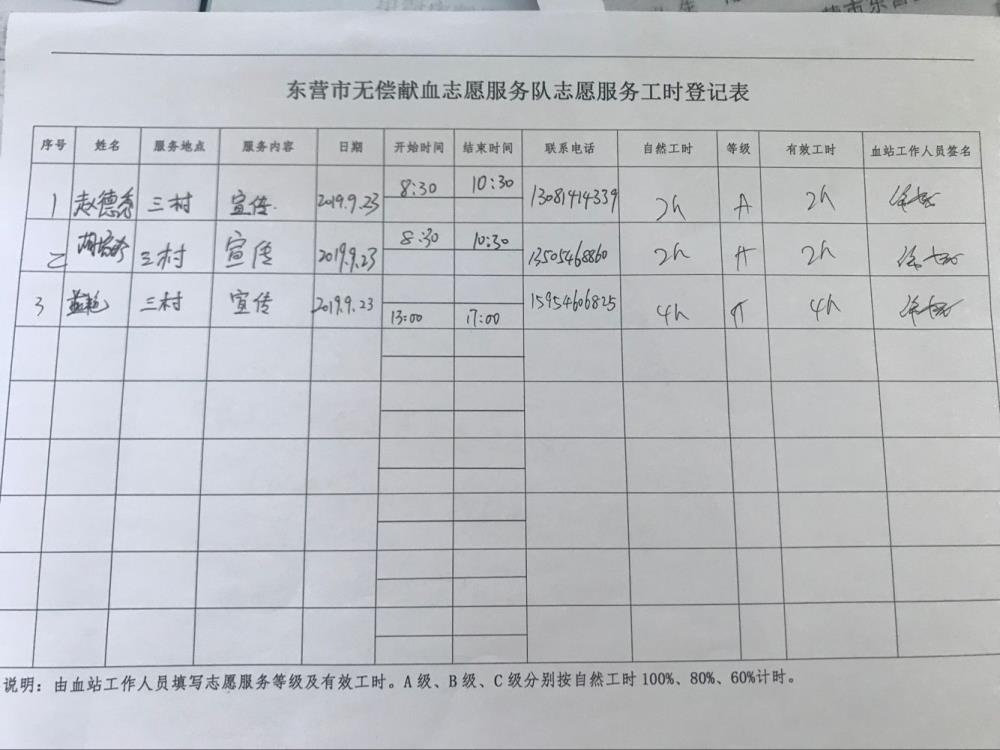 东营市无偿献血志愿服务队志愿服务工时登记表
序号 姓名 服务地点 服务内容 日期 开始时间 结束时间 联系电话 自然工时 等级 有效工时 血站工作人员签名
1 赵德秀 三村 宣传 2019.9.23 8:30 10:30 13081414339 2h A 2h
2 三村 宣传 2019.9.23 8:30 10:30 13505468860 2h A 2h
3 三村 宣传 2019.9.23 13:00 17:00 15954606825 4h A 4h
说明：由血站工作人员填写志愿服务等级及有效工时。A级、B级、C级分别按自然工时100%、80%、60%计时。